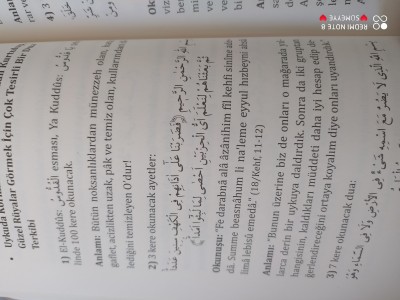 • Uykuda
Güzel Rüyalar Görmek İçin Çok Tesirli Bir
Terkibi
1) El-Kuddüs: اَلْقُدُّوسُ esması, Ya Kuddüs: يَا قُدُّوسُ
linde 100 kere okunacak.
Anlamı: Bütün noksanlıklardan münezzeh olan,
gaflet, acizlikten uzak, pâk ve temiz olan, kullarından
lediğini temizleyen O'dur!
2) 3 kere okunacak ayetler:
بِسْمِ اللهِ الرَّحْمٰنِ الرَّحِيمِ ﴿فَضَرَبْنَا عَلٰى اٰذَانِهِمْ فِى الْكَهْفِ سِنِينَ عَدَدًا
ثُمَّ بَعَثْنَاهُمْ لِنَعْلَمَ اَىُّ الْحِزْبَيْنِ اَحْصٰى لِمَا لَبِثُوا اَمَدًا﴾
Okunuşu: "Fe darabnâ alâ âzânihim fil kehfi
dâ. Summe beasnâhum li na'leme eyyul hızbeyni ahsâ
limâ lebisû emedâ." (18/Kehf, 11-12)
Anlamı: "Bunun üzerine biz de onları o mağarada
larca derin bir uykuya daldırdık. Sonra da iki gruptan
hangisinin, kaldıkları müddeti daha iyi hesap edip
gerlendireceğini ortaya koyalım diye onları uyandırdık.
3) 7 kere okunacak dua:
بِسْمِ اللهِ الَّذِى لَا يَضُرُّ مَعَ اسْمِهِ شَىْءٌ فِى الْاَرْضِ وَلَا فِى السَّمَاءِ وَهُوَ
REDMI NOTE 8
SÜMEYYE